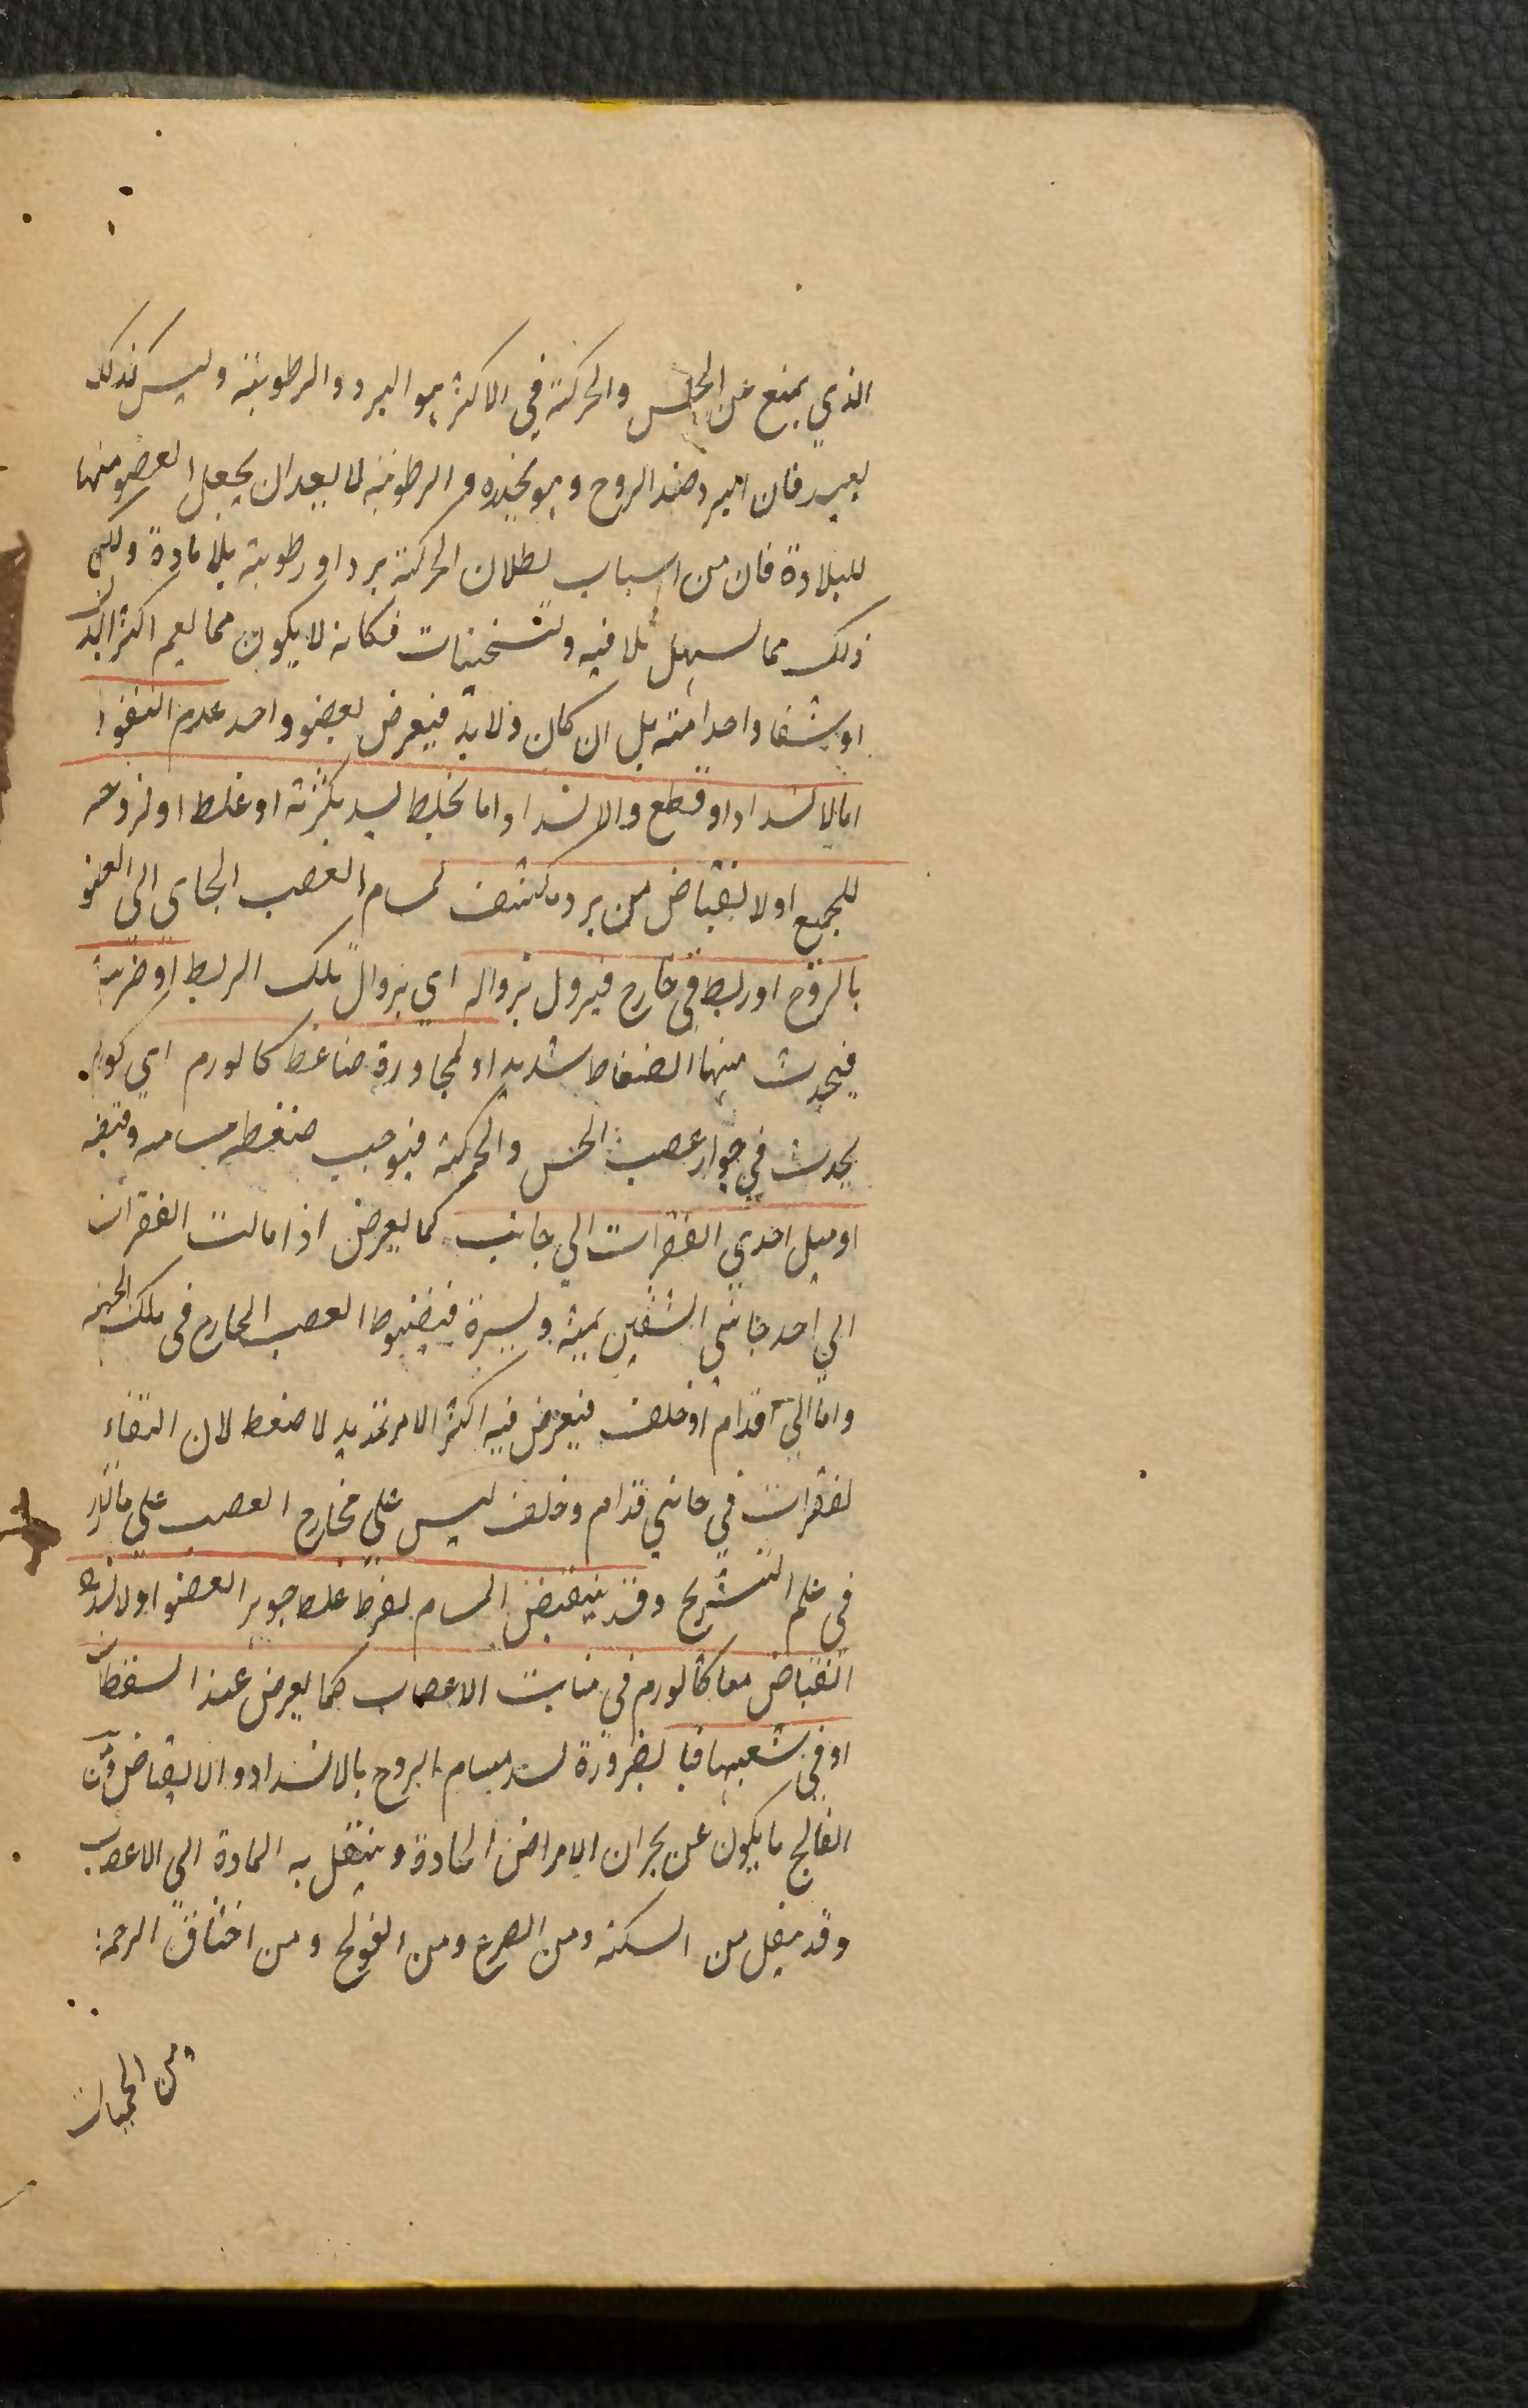 الذي يمنع عن الحس والحركة في الاكثر هو البرد والرطوبة وليس كذلك
ببعيد فان البرد ضد الروح وهو يخدره والرطوبة لا يبعد ان يجعل العضو منها
للبلادة فان من اسباب بطلان الحركة برد او رطوبة بلا مادة ولكن
ذلك مما يسهل تلافيه وتسخينات فكانه لا يكون مما يعم اكثر البدن
او شقا واحدا منه بل ان كان ولا بد فيعرض لعضو واحد عدم النفوذ
اما لانسداد او قطع والانسداد اما بخلط يسد بكثرته او غلظ او لزوجه
للجميع او لانقباض من برد مكثف لمسام العصب الجاي الى العضو
بالروح او ربط في خارج فيزول بزواله اي بزوال تلك الربط او ضربة
فيحدث منها انضغاط شديد او لمجاورة ضاغط كالورم اي كورم
يحدث في جوار عصب الحس والحركة فيوجب ضغط مسامه وقبضه
او ميل احدى الفقرات الى جانب كما يعرض اذا مالت الفقرات
الى احد جانبي الشقين يمنة ويسرة فينضغط العصب الخارج في تلك الجهة
واما الى قدام او خلف فيعرض فيه اكثر الامر تمديد لا ضغط لان التقاء
الفقرات في جانبي قدام وخلف ليس على مخارج العصب على ما تقرر
في علم التشريح وقد ينقبض المسام لفرط غلظ جوهر العضو او لانسداد
انقباض معا كالورم في منابت الاعصاب كما يعرض عند السقطات
او في شعبها فبا لضرورة يسد مسام الروح بالانسداد والانقباض ومن
الفالج ما يكون عن بحران الامراض الحادة وينتقل به المادة الى الاعصاب
وقد ينتقل من السكتة ومن الصرع ومن القولنج ومن اختناق الرحم
من الحميات